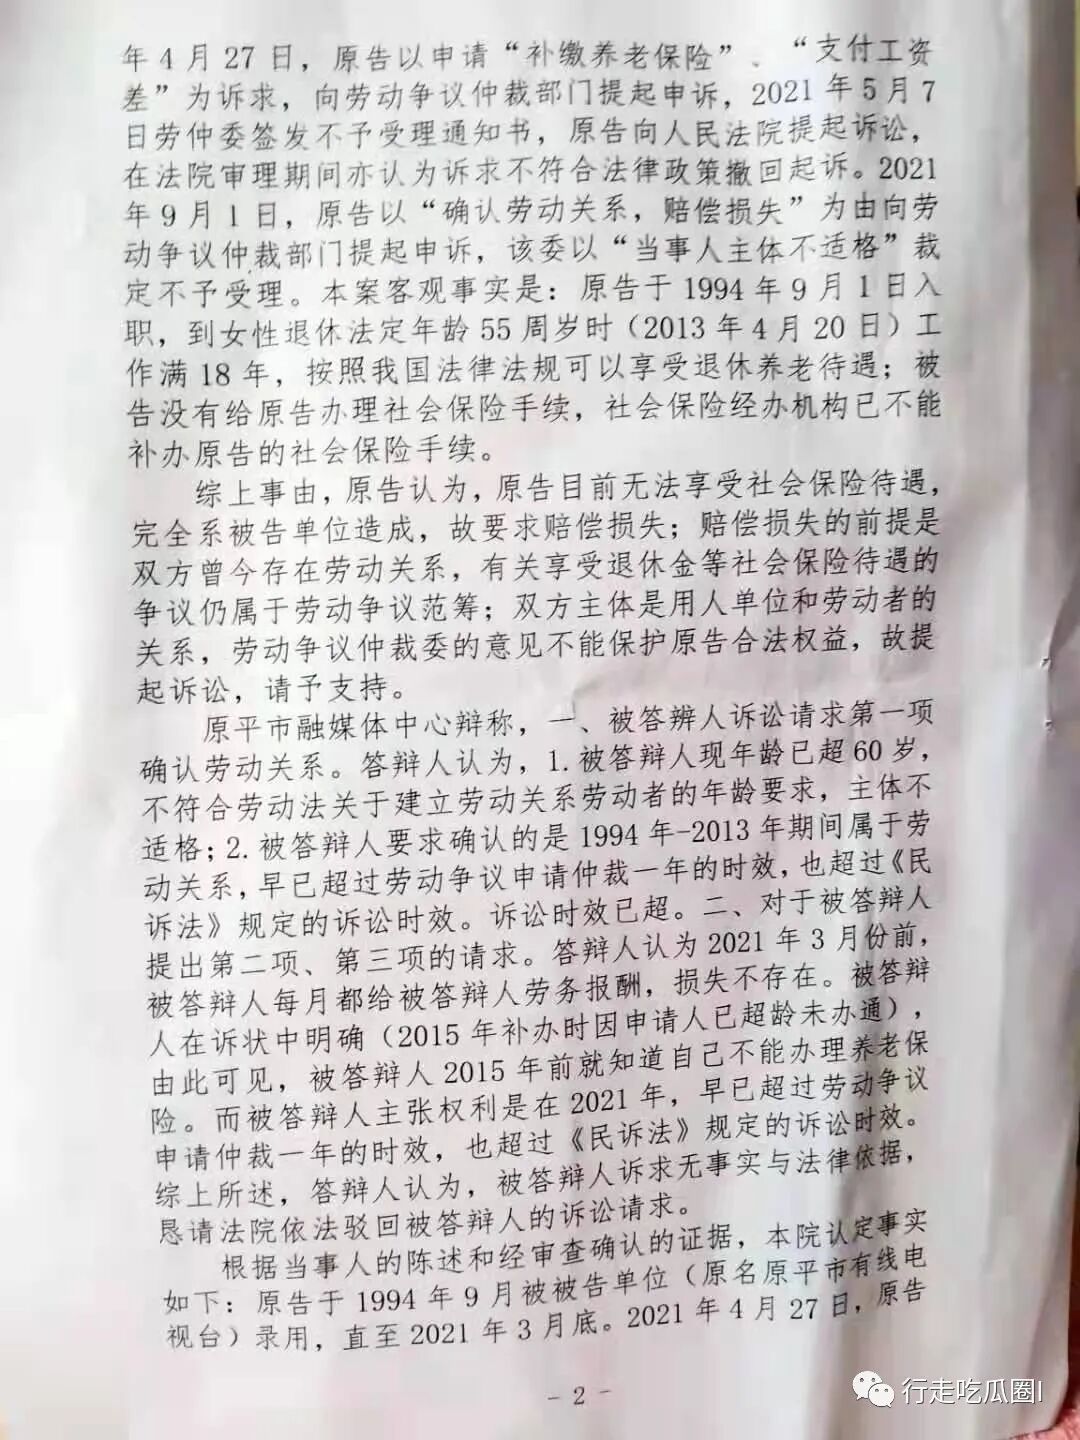 年4月27日，原告以申请“补缴养老保险”、“支付工资
差”为诉求，向劳动争议仲裁部门提起申诉，2021年5月7
日劳仲委签发不予受理通知书，原告向人民法院提起诉讼，
在法院审理期间亦认为诉求不符合法律政策撤回起诉。2021
年9月1日，原告以“确认劳动关系，赔偿损失”为由向劳
动争议仲裁部门提起申诉，该委以“当事人主体不适格”裁
定不予受理。本案客观事实是：原告于1994年9月1日入
职，到女性退休法定年龄55周岁时（2013年4月20日）工
作满18年，按照我国法律法规可以享受退休养老待遇；被
告没有给原告办理社会保险手续，社会保险经办机构已不能
补办原告的社会保险手续。
综上事由，原告认为，原告目前无法享受社会保险待遇，
完全系被告单位造成，故要求赔偿损失；赔偿损失的前提是
双方曾今存在劳动关系，有关享受退休金等社会保险待遇的
争议仍属于劳动争议范筹；双方主体是用人单位和劳动者的
关系，劳动争议仲裁委的意见不能保护原告合法权益，故提
起诉讼，请予支持。
原平市融媒体中心辩称，一、被答辨人诉讼请求第一项
确认劳动关系。答辩人认为，1.被答辩人现年龄已超60岁，
不符合劳动法关于建立劳动关系劳动者的年龄要求，主体不
适格；2.被答辩人要求确认的是1994年-2013年期间属于劳
动关系，早已超过劳动争议申请仲裁一年的时效，也超过《民
诉法》规定的诉讼时效。诉讼时效已超。二、对于被答辩人
提出第二项、第三项的请求。答辩人认为2021年3月份前，
被答辩人每月都给被答辩人劳务报酬，损失不存在。被答辩
人在诉状中明确（2015年补办时因申请人已超龄未办通），
由此可见，被答辩人2015年前就知道自己不能办理养老保
险。而被答辩人主张权利是在2021年，早已超过劳动争议
申请仲裁一年的时效，也超过《民诉法》规定的诉讼时效。
综上所述，答辩人认为，被答辩人诉求无事实与法律依据，
恳请法院依法驳回被答辩人的诉讼请求。
根据当事人的陈述和经审查确认的证据，本院认定事实
如下：原告于1994年9月被被告单位（原名原平市有线电
视台）录用，直至2021年3月底。2021年4月27日，原告
- 2 -
行走吃瓜圈I